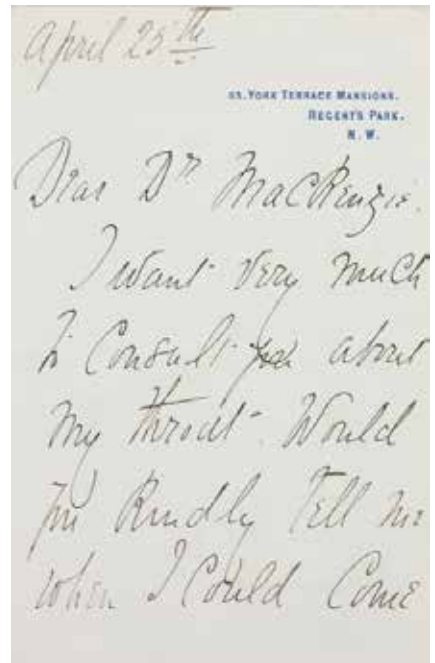 April 25th
65, York Terrace Mansions.
Regent's Park.
N. W.
Dear Dr MacKenzie.
I want very much
to Consult you about
my throat. Would
you Kindly Tell me
when I Could Come